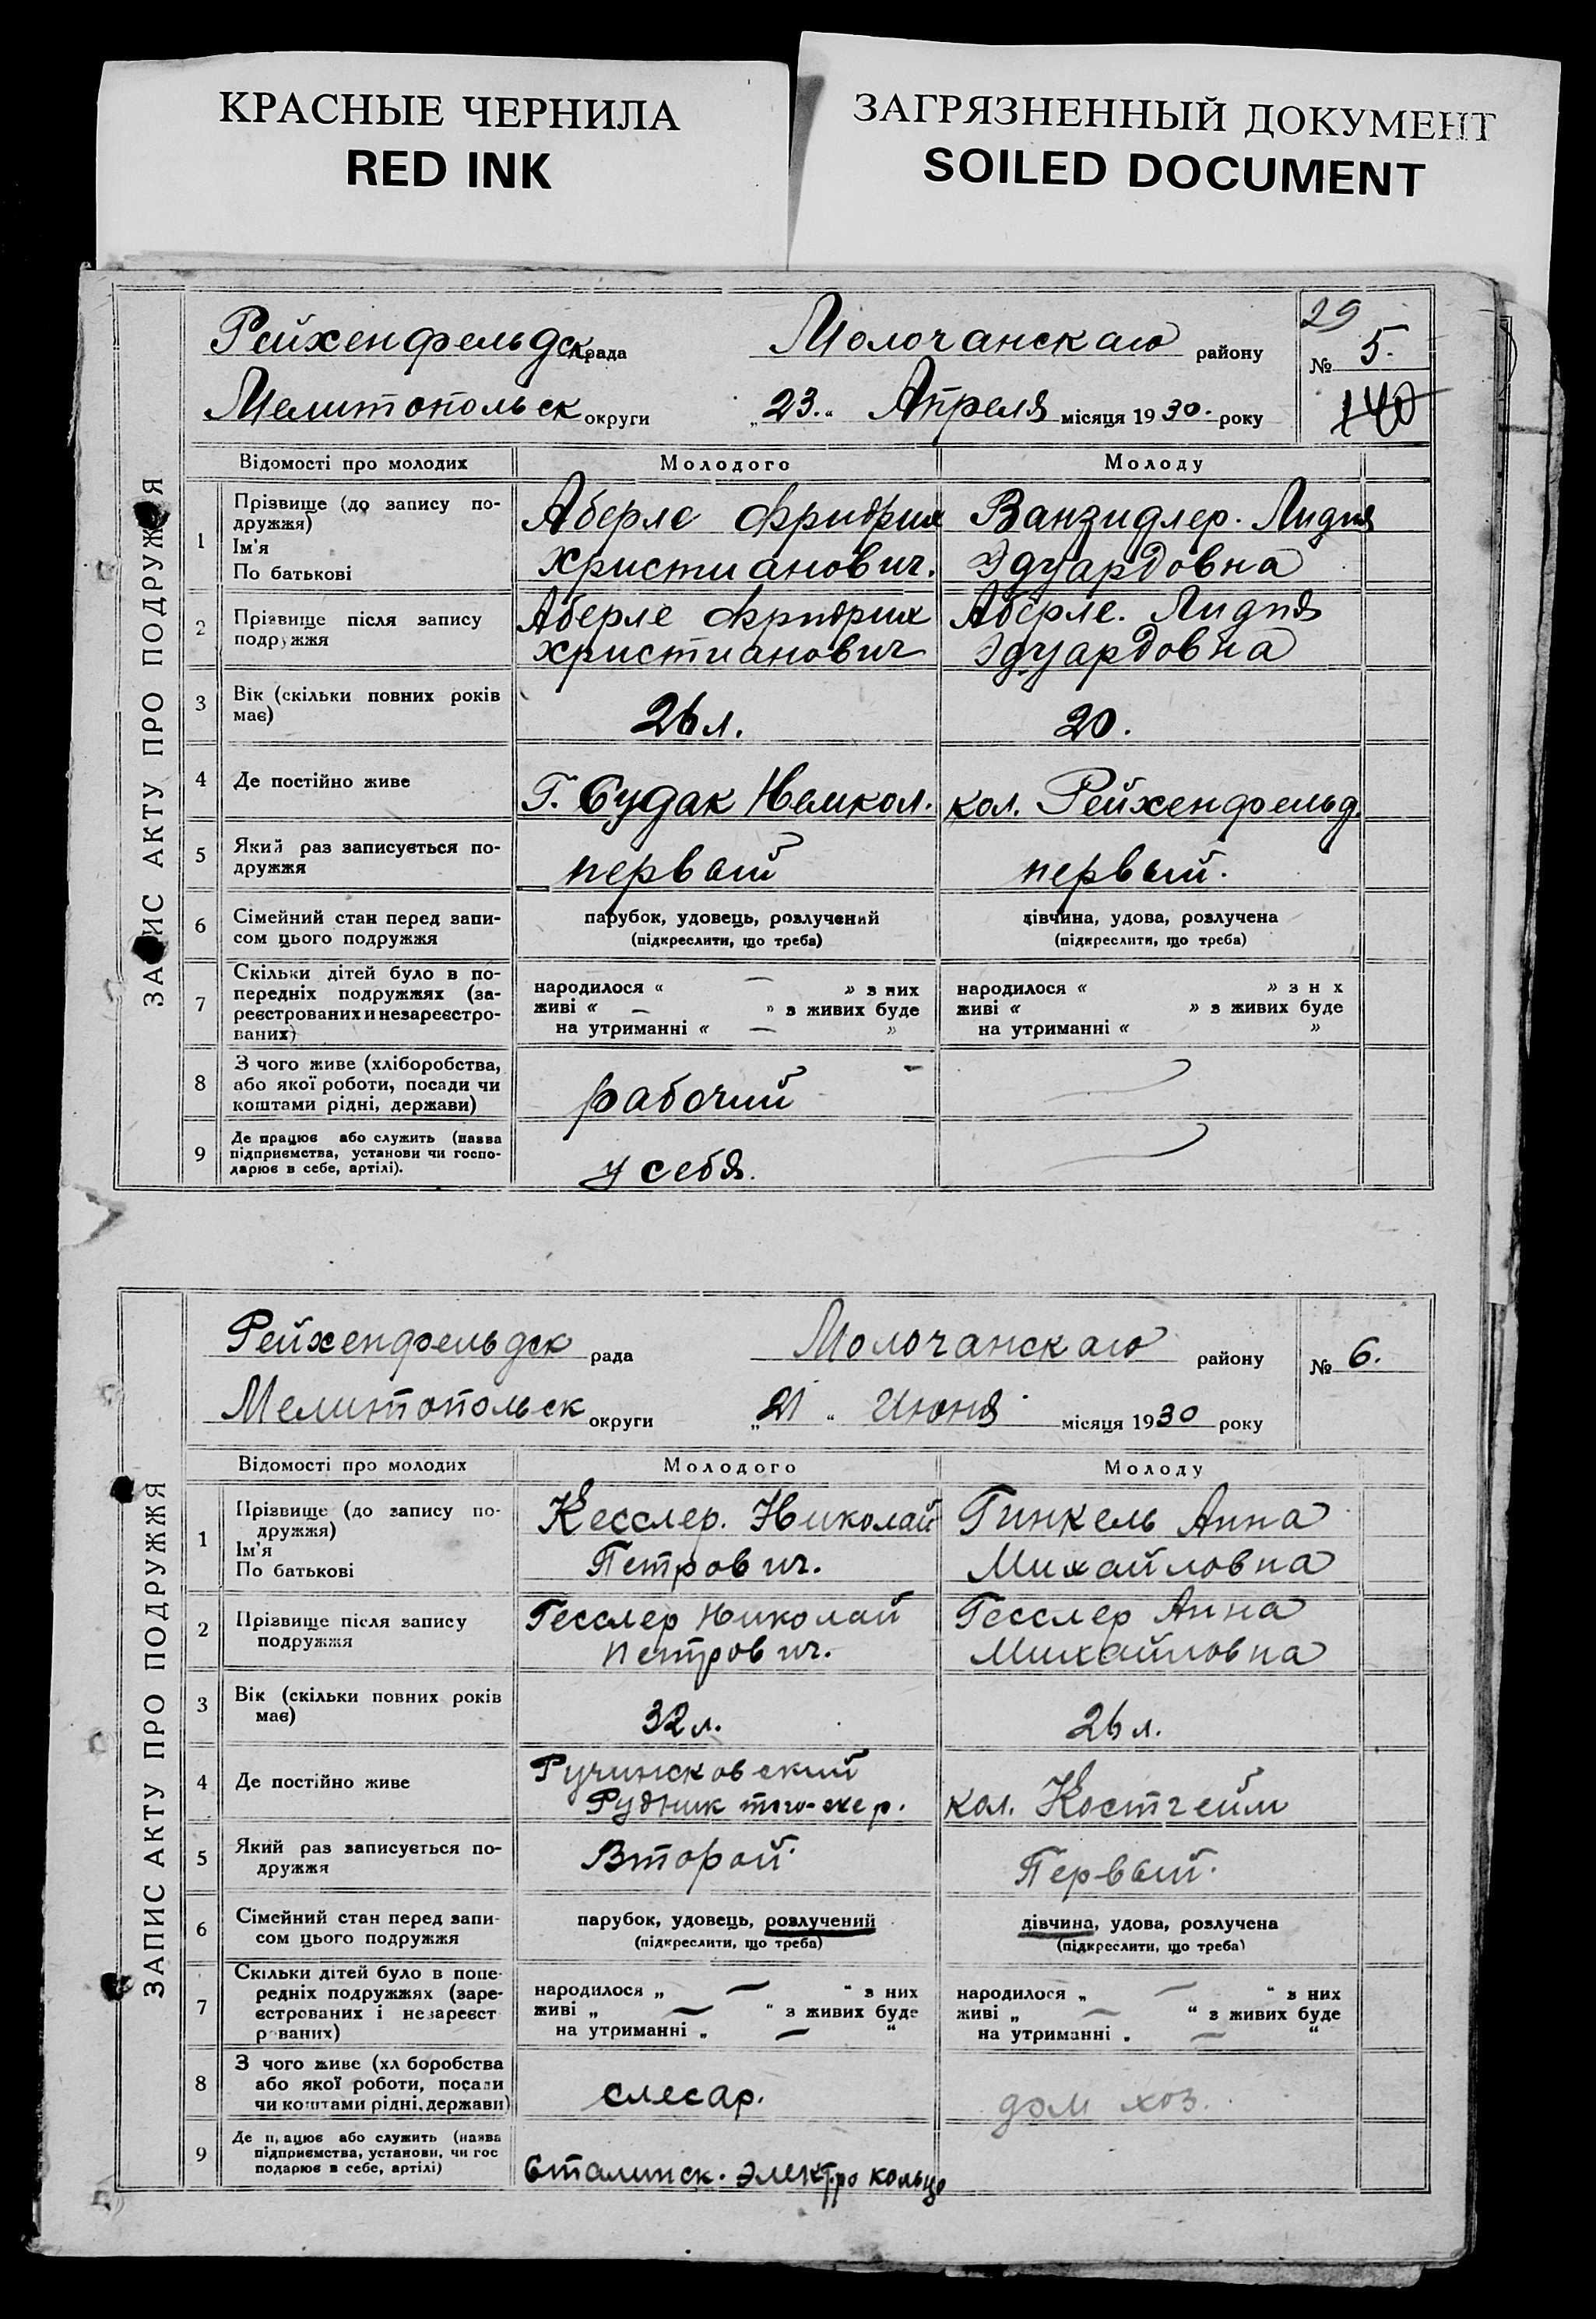 КРАСНЫЕ ЧЕРНИЛА
RED INK
ЗАГРЯЗНЕННЫЙ ДОКУМЕНТ
SOILED DOCUMENT
29
Рейхенфельдск рада Молочанскаго району № 5.
Мелитопольск округи „23.“ Апреля місяця 1930. року
140
ЗАПИС АКТУ ПРО ПОДРУЖЖЯ
Відомості про молодих Молодого Молоду
1 Прізвище (до запису по-
дружжя)
Ім'я
По батькові
Аберле Фридрих
Христианович.
Ванзидлер. Лидия
Эдуардовна
2 Прізвище після запису
подружжя
Аберле Фридрих
христианович
Аберле. Лидия
Эдуардовна
3 Вік (скільки повних років
має)
26 л.
20.
4 Де постійно живе
Г. Судак Немкол.
кол. Рейхенфельд.
5 Який раз записується по-
дружжя
первый
первый.
6 Сімейний стан перед запи-
сом цього подружжя
парубок, удовець, розлучений
(підкреслити, що треба)
дівчина, удова, розлучена
(підкреслити, що треба)
7 Скільки дітей було в по-
передніх подружжях (за-
реєстрованих и незареєстро-
ваних)
народилося “ — ” з них
живі “ — ” з живих буде
на утриманні “ — ”
народилося “ ” з н х
живі “ ” з живих буде
на утриманні “ ”
8 З чого живе (хліборобства,
або якої роботи, посади чи
коштами рідні, держави)
рабочий
9 Де працює або служить (назва
підприємства, установи чи госпо-
дарює в себе, артілі).
у себя.
Рейхенфельдск рада Молочанскаго району № 6.
Мелитопольск округи „21“ Июня місяця 1930 року
ЗАПИС АКТУ ПРО ПОДРУЖЖЯ
Відомості про молодих Молодого Молоду
1 Прізвище (до запису по-
дружжя)
Ім'я
По батькові
Кесслер. Николай
Петрович.
Гинкель Анна
Михайловна
2 Прізвище після запису
подружжя
Гесслер Николай
Петрович.
Гесслер Анна
Михайловна
3 Вік (скільки повних років
має)
32 л.
26 л.
4 Де постійно живе
Рудник
кол. Костгейм
5 Який раз записується по-
дружжя
Второй.
Первый.
6 Сімейний стан перед запи-
сом цього подружжя
парубок, удовець, розлучений
(підкреслити, що треба)
дівчина, удова, розлучена
(підкреслити, що треба)
7 Скільки дітей було в попе-
редніх подружжях (заре-
єстрованих і незареєст
рованих)
народилося „ — “ з них
живі „ — “ з живих буде
на утриманні „ — “
народилося „ — “ з них
живі „ — “ з живих буде
на утриманні „ — “
8 З чого живе (хл боробства
або якої роботи, посади
чи коштами рідні, держави)
слесар.
дом хоз.
9 Де працює або служить (назва
підприємства, установи, чи гос
подарює в себе, артілі)
Сталинск. электро кольцо